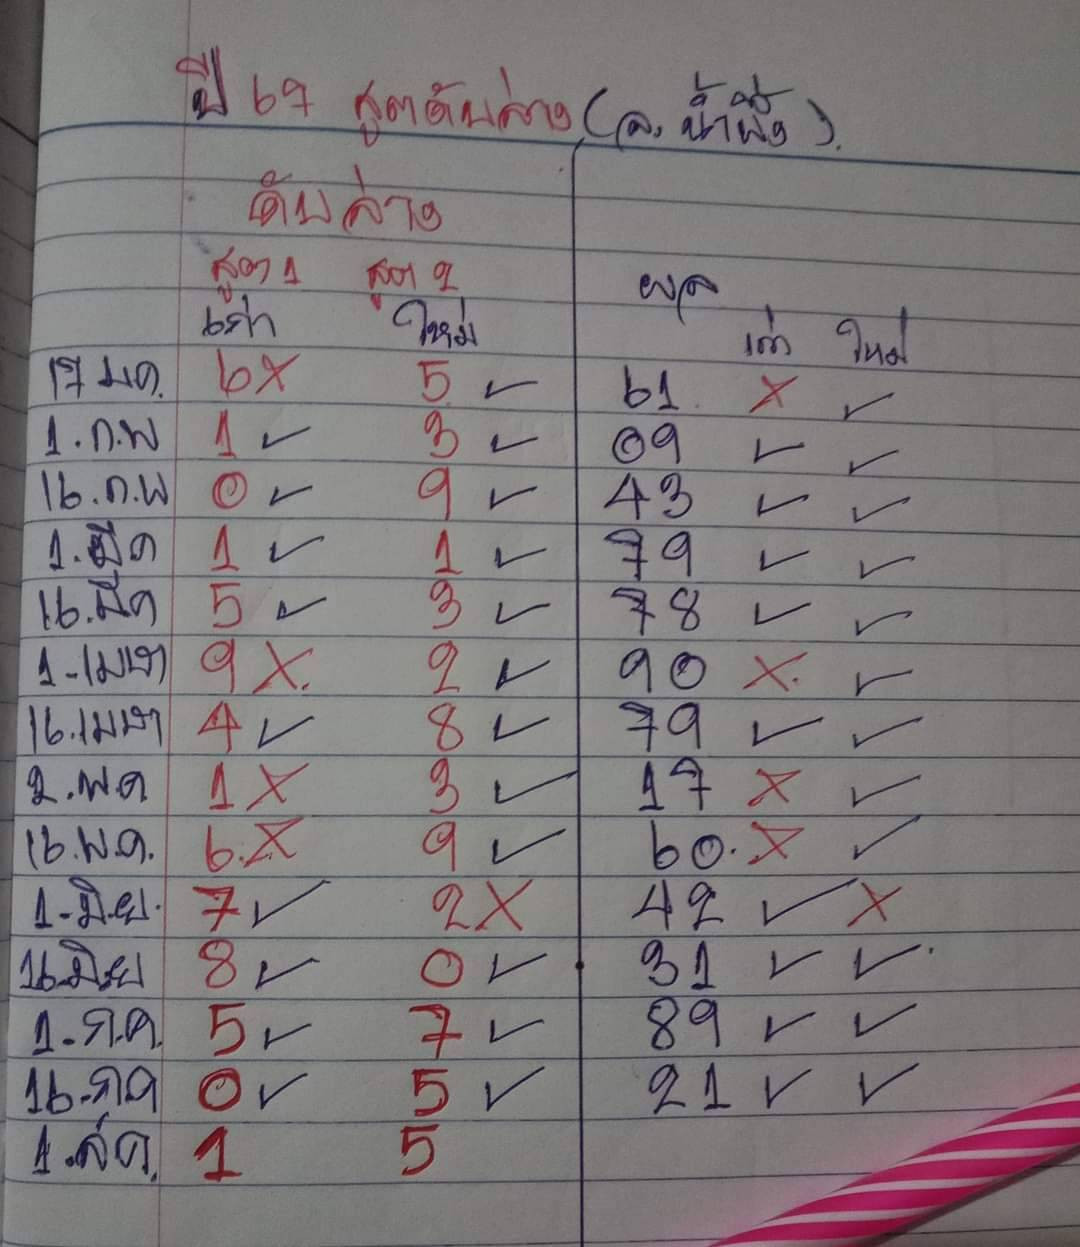 ปี 67 สูตรดับล่าง (อ. น้ำผึ้ง).
ดับล่าง
สูตร 1 สูตร 2 ผล
เก่า ใหม่ เก่า ใหม่
17 มค. 6 X 5 ✓ 61. X ✓
1. ก.พ 1 ✓ 3 ✓ 09 ✓ ✓
16. ก.พ 0 ✓ 9 ✓ 43 ✓ ✓
1. มีค 1 ✓ 1 ✓ 79 ✓ ✓
16. มีค 5 ✓ 3 ✓ 78 ✓ ✓
1-เมษา 9 X. 2 ✓ 90 X. ✓
16.เมษา 4 ✓ 8 ✓ 79 ✓ ✓
2. พค 1 X 3 ✓ 17 X ✓
16. พ.ค. 6. X 9 ✓ 60. X ✓
1-มิ.ย. 7 ✓ 2 X 42 ✓ X
16-มิ.ย 8 ✓ 0 ✓ 31 ✓ ✓
1-ก.ค. 5 ✓ 7 ✓ 89 ✓ ✓
16-กค 0 ✓ 5 ✓ 21 ✓ ✓
1. สค. 1 5